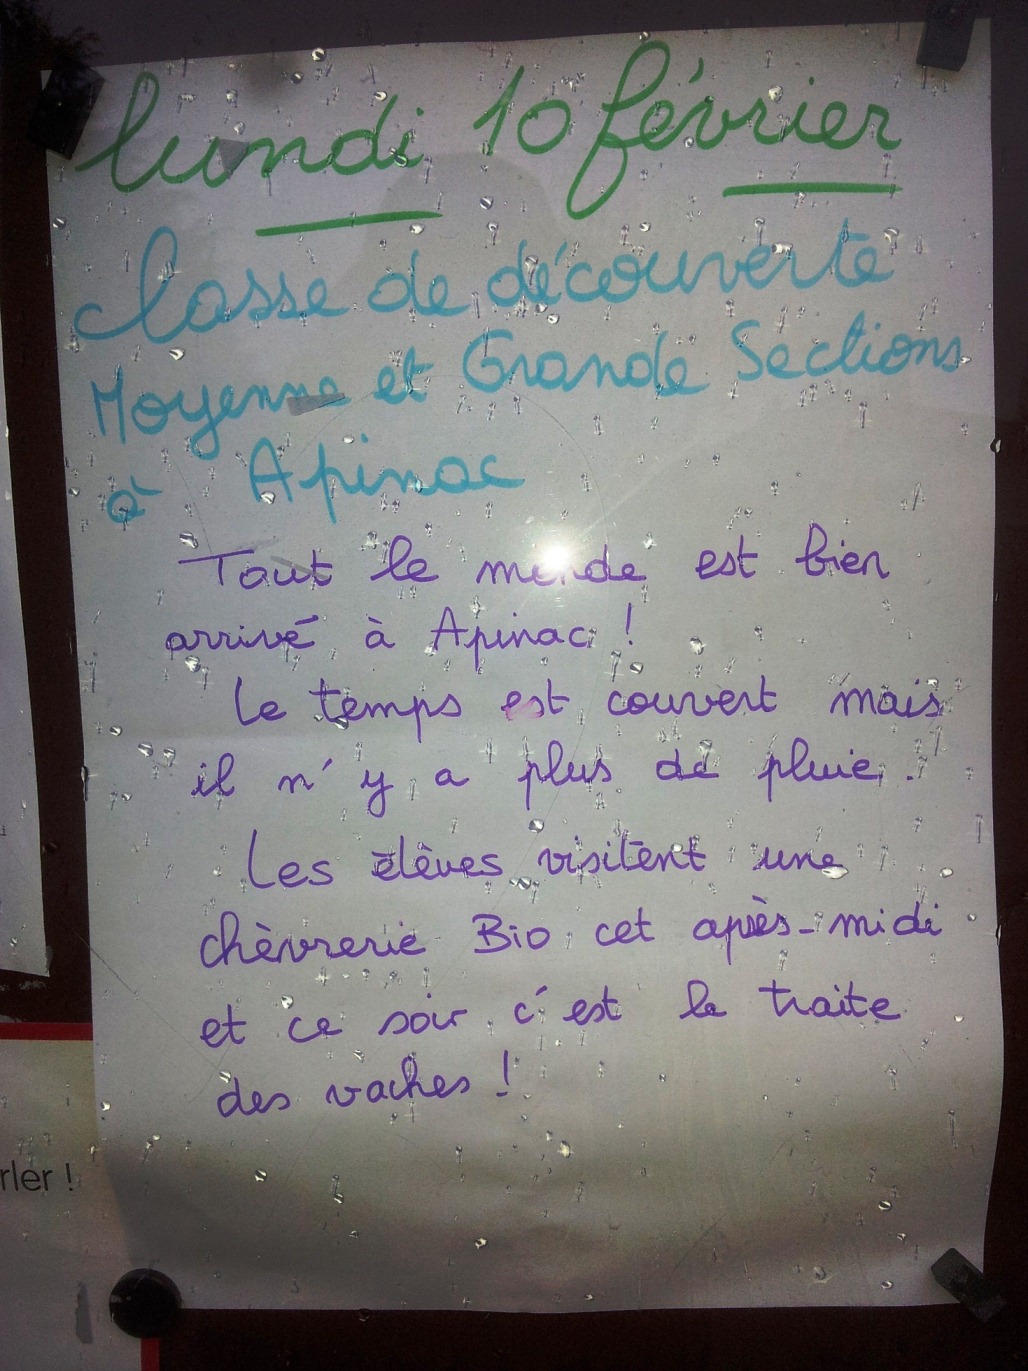 lundi 10 février
Classe de découverte
Moyenne et Grande Sections
à Apinac
Tout le monde est bien
arrivé à Apinac !
Le temps est couvert mais
il n'y a plus de pluie.
Les élèves visitent une
chèvrerie Bio cet après-midi
et ce soir c'est la traite
des vaches !
rler !